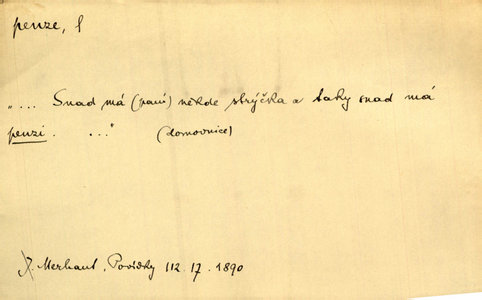 penze, f
„ ... Snad má (paní) někde strýčka a taky snad má
penzi. ..." (domovnice)
J. Merhaut, Povídky 112.17.1890